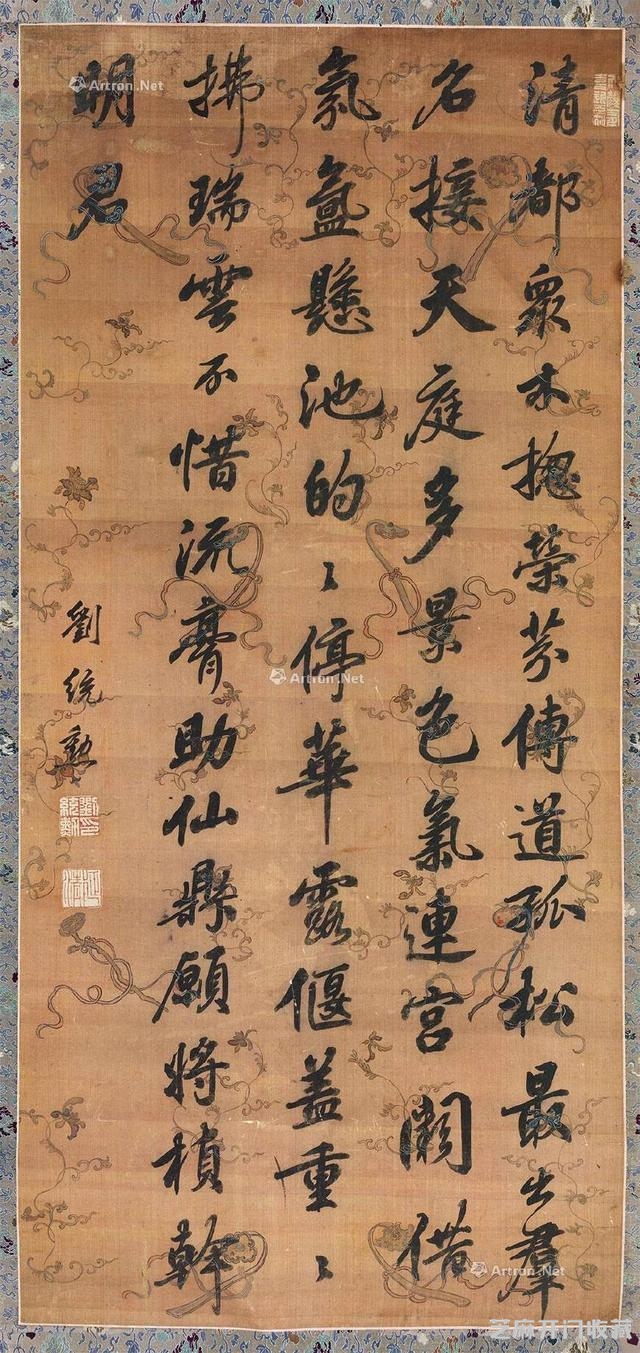 清都衆木揔榮芬傳道孤松最出羣
名接天庭多景色氣連宮闕借
氛氳懸池的〻停華露偃蓋重〻
拂瑞雲不惜流膏助仙鼎願將楨幹
明君
劉統勳
劉統勳印
Artron.Net
Artron.Net
Artron.Net
Artron.Net
芝麻开门收藏